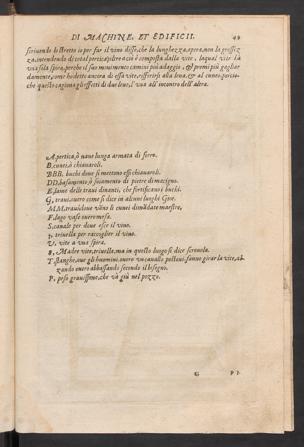 DI MACHINE, ET EDIFICII. 49
scriuendo lo stretto io per far il vino disse, che la lunghezza, opera, non la grossez
za, intendendo di cotal pertica; oltre a ciò è composta dalla vite, laqual vite hà
vna sola spira, perche il suo mouimento camini più adaggio, & premi più gagliar
damente, come hò detto ancora di essa vite, riferirsi alla leua, & al cuneo, percio-
che questo cagiona gli effetti di due leue, l'vna all'incontro dell'altra.
A, pertica, ò vaue lunga armata di ferro.
B, cunei, ò chiauaroli.
BBB, buchi doue si mettono essi chiauaroli.
DD, basamento, ò suiamento di pietre di macigno.
E, fame delle traui dinanti, che fortificano i buchi.
G, traui, ouero come si dice in alcuni luoghi Gioe.
MM, traui doue vano li cunei dimādate maestre.
F, lago vase ouero mosa.
S, canale per doue esce il vino.
3, triuella per raccoglier il vino.
V, vite a vna spira.
8, Madre vite, triuella, ma in questo luogo si dice scrouola.
T, stanghe, oue gli huomini, ouero vn cauallo posto ui, fanno girar la vite, al-
zando ouero abbassando secondo il bisogno.
P, peso grauissimo, che và giù nel pozzo.
G PI.